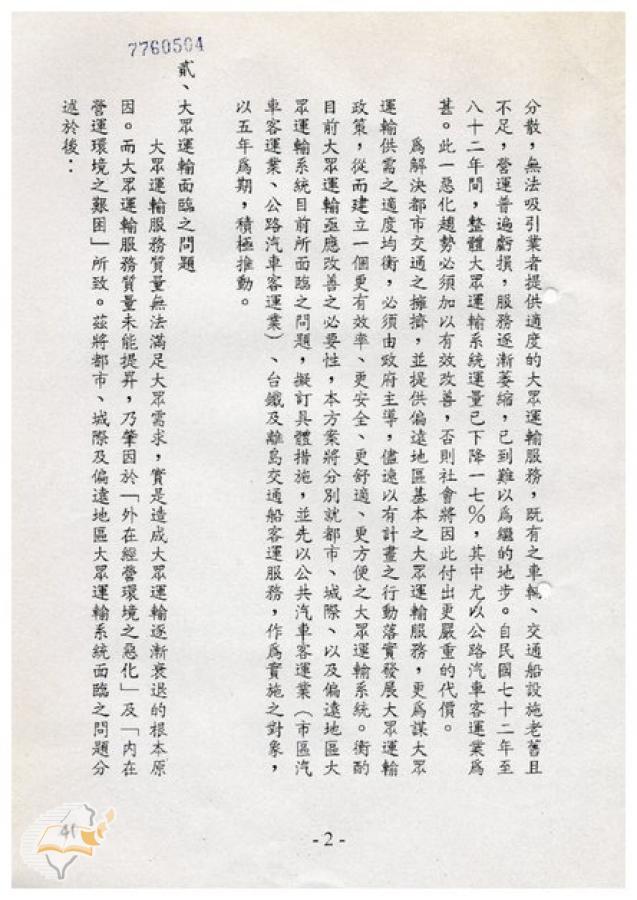 7760504
分散，無法吸引業者提供適度的大眾運輸服務，既有之車輛、交通船設施老舊且
不足，營運普遍虧損，服務逐漸萎縮，已到難以為繼的地步。自民國七十二年至
八十二年間，整體大眾運輸系統運量已下降一七％，其中尤以公路汽車客運業為
甚。此一惡化趨勢必須加以有效改善，否則社會將因此付出更嚴重的代價。
為解決都市交通之擁擠，並提供偏遠地區基本之大眾運輸服務，更為謀大眾
運輸供需之適度均衡，必須由政府主導，儘速以有計畫之行動落實發展大眾運輸
政策，從而建立一個更有效率、更安全、更舒適、更方便之大眾運輸系統。衡酌
目前大眾運輸亟應改善之必要性，本方案將分別就都市、城際、以及偏遠地區大
眾運輸系統目前所面臨之問題，擬訂具體措施，並先以公共汽車客運業（市區汽
車客運業、公路汽車客運業）、台鐵及離島交通船客運服務，作為實施之對象，
以五年為期，積極推動。
貳、大眾運輸面臨之問題
大眾運輸服務質量無法滿足大眾需求，實是造成大眾運輸逐漸衰退的根本原
因。而大眾運輸服務質量未能提昇，乃肇因於「外在經營環境之惡化」及「內在
營運環境之艱困」所致。茲將都市、城際及偏遠地區大眾運輸系統面臨之問題分
述於後：
-2-